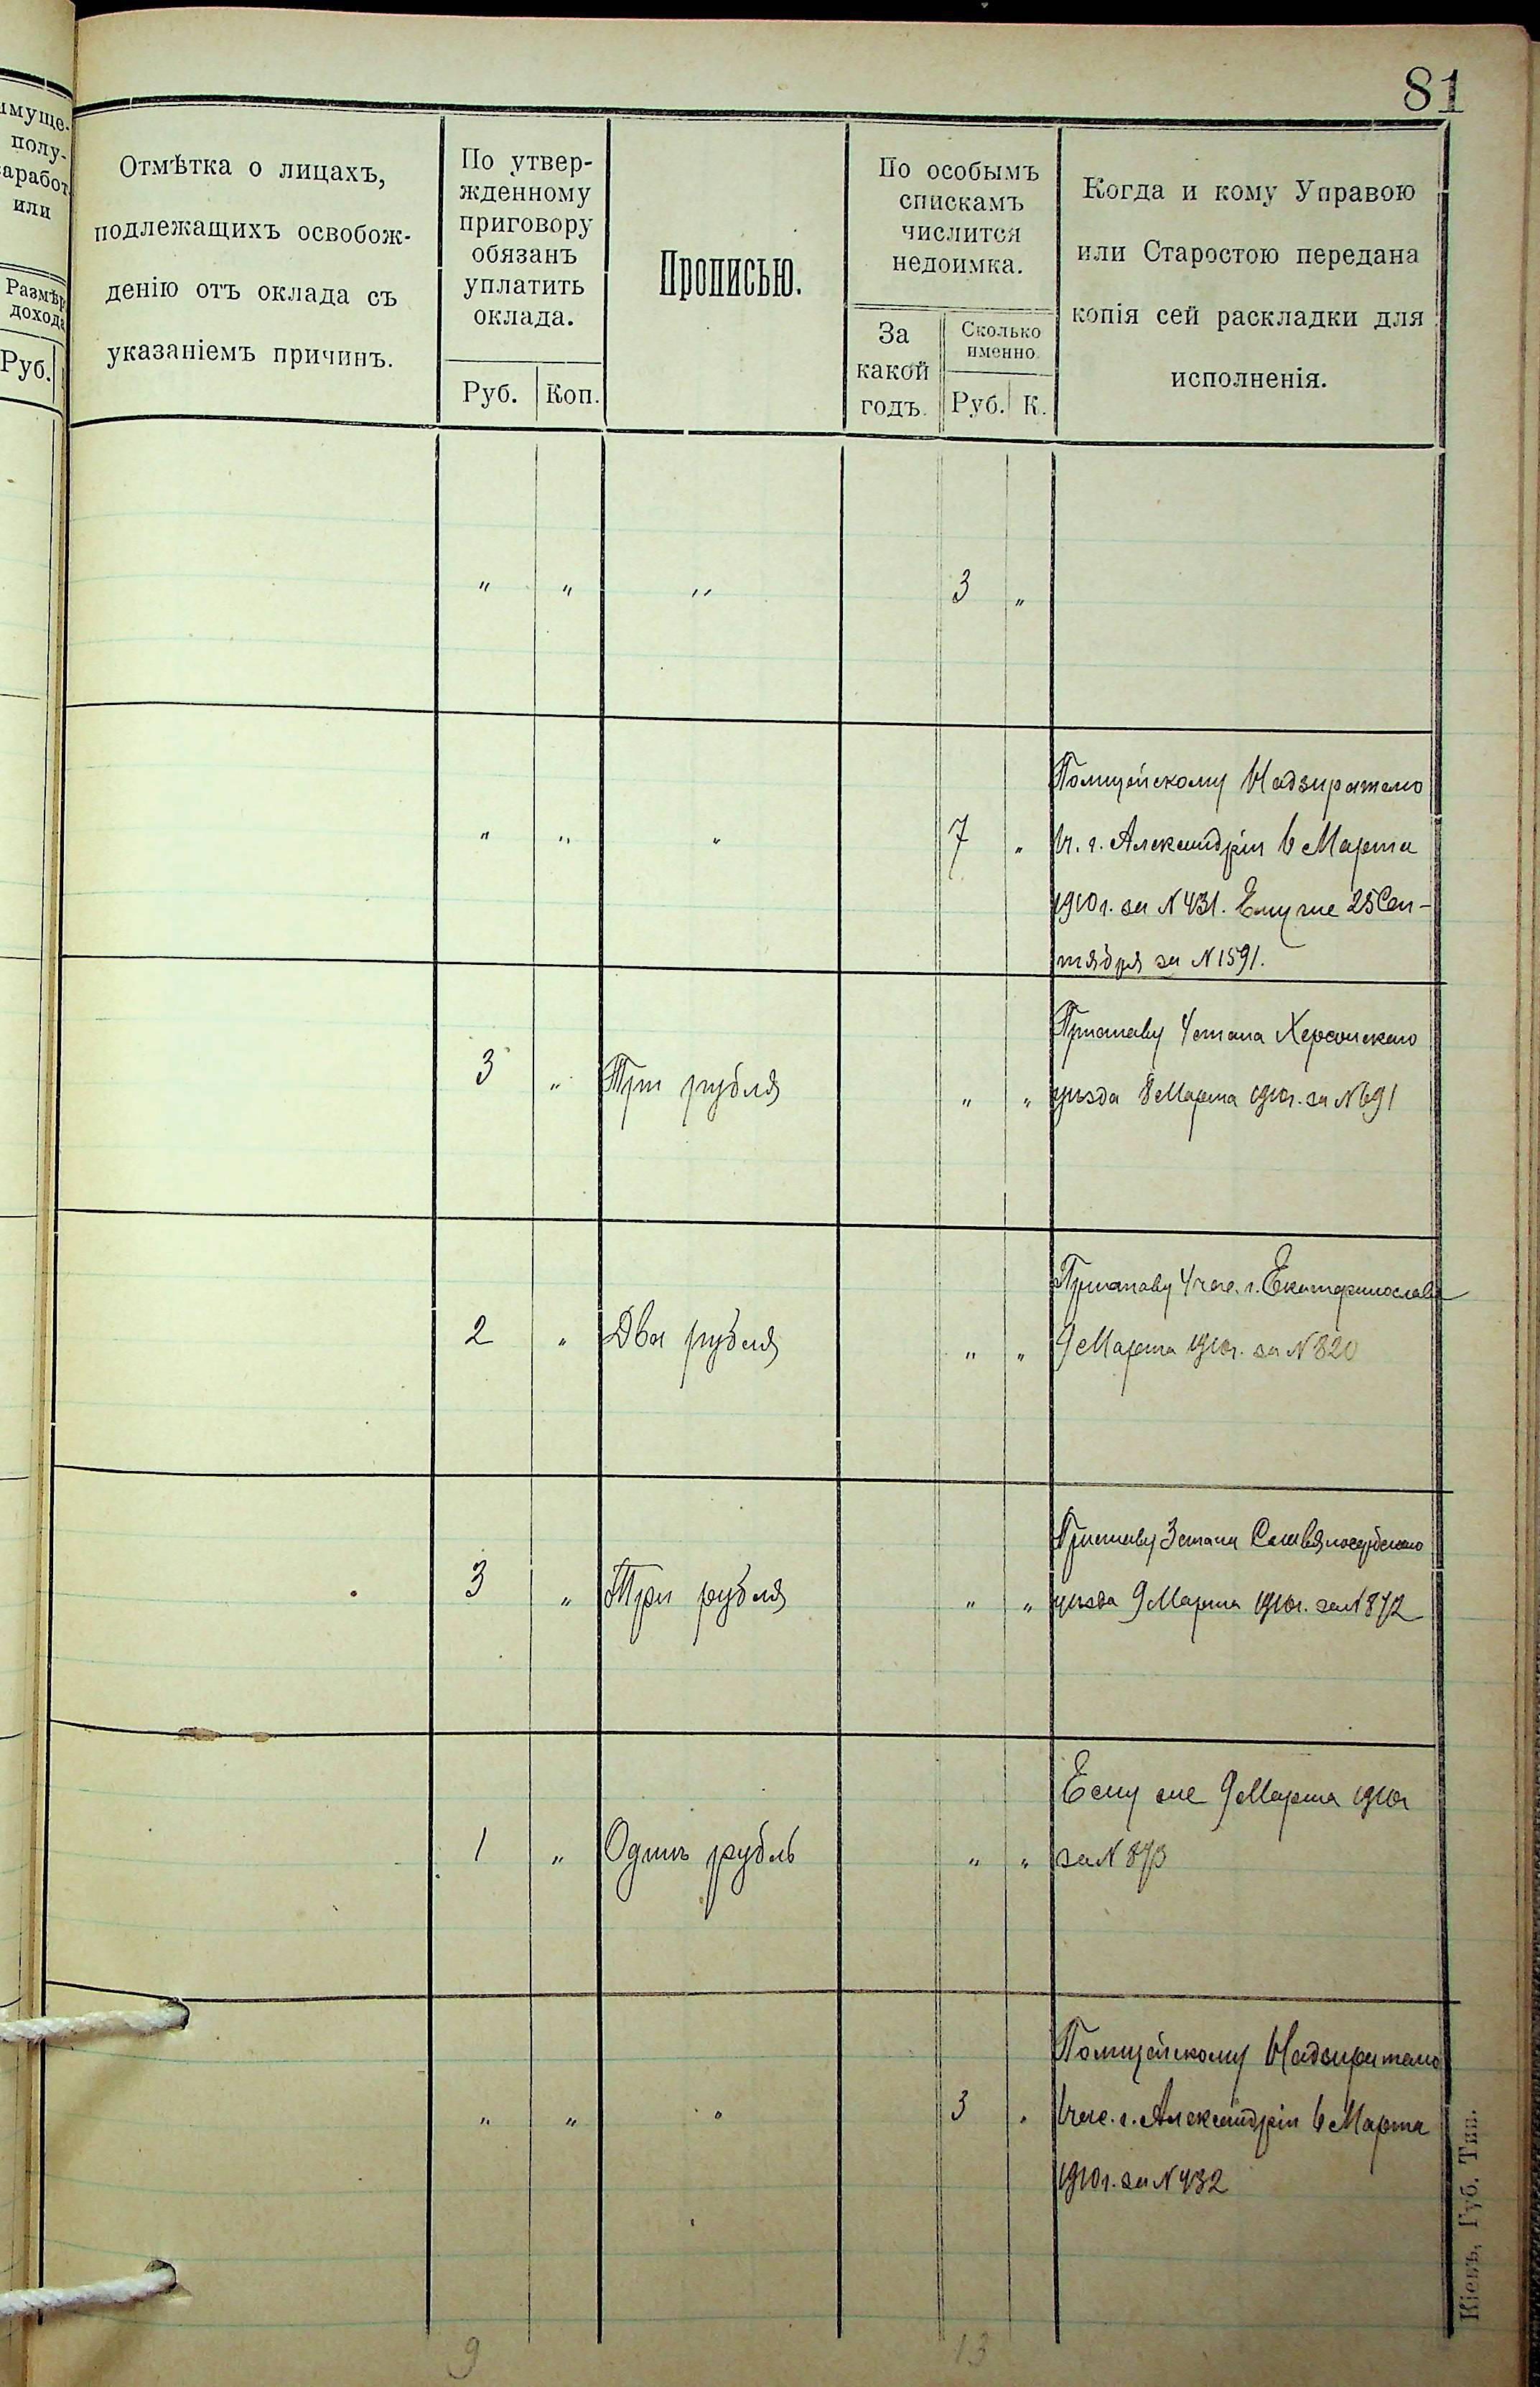 81
имуще-
полу-
заработ.
или
Размѣръ
дохода
Руб.
Отмѣтка о лицахъ,
подлежащихъ освобож-
денію отъ оклада съ
указаніемъ причинъ.
По утвер-
жденному
приговору
обязанъ
уплатить
оклада.
Руб. Коп.
Прописью.
По особымъ
спискамъ
числится
недоимка.
За
какой
годъ.
Сколько
именно.
Руб. К.
Когда и кому Управою
или Старостою передана
копія сей раскладки для
исполненія.
" " " 3 "
" " " 7 "
Полицейскому Надзирателю
г. Александріи 6 Марта
1910 г. за N 431. Ему же 25 Сен-
тября за N 1591.
3 " Три рубля " "
Приставу 4 стана Херсонскаго
уѣзда 8 Марта 1910 г. за N 691
2 " Два рубля " "
Приставу 4 час. г. Екатеринослава
9 Марта 1910 г. за N 820
3 " Три рубля " "
Приставу 3 стана
уѣзда 9 Марта 1910 г. за N 872
1 " Одинъ рубль " "
Ему же 9 Марта 1910 г
за N 873
" " " 3 "
Полицейскому Надзирателю
1 час. г. Александріи 6 Марта
1910 г. за N 432
9 13
Кіевъ, Губ. Тип.